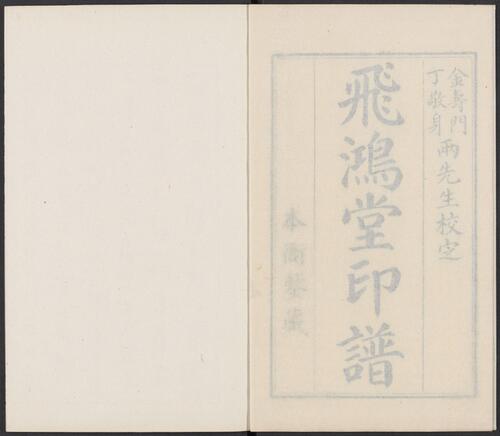 金壽門
丁敬身
兩先生校定
飛鴻堂印譜
本衙藏